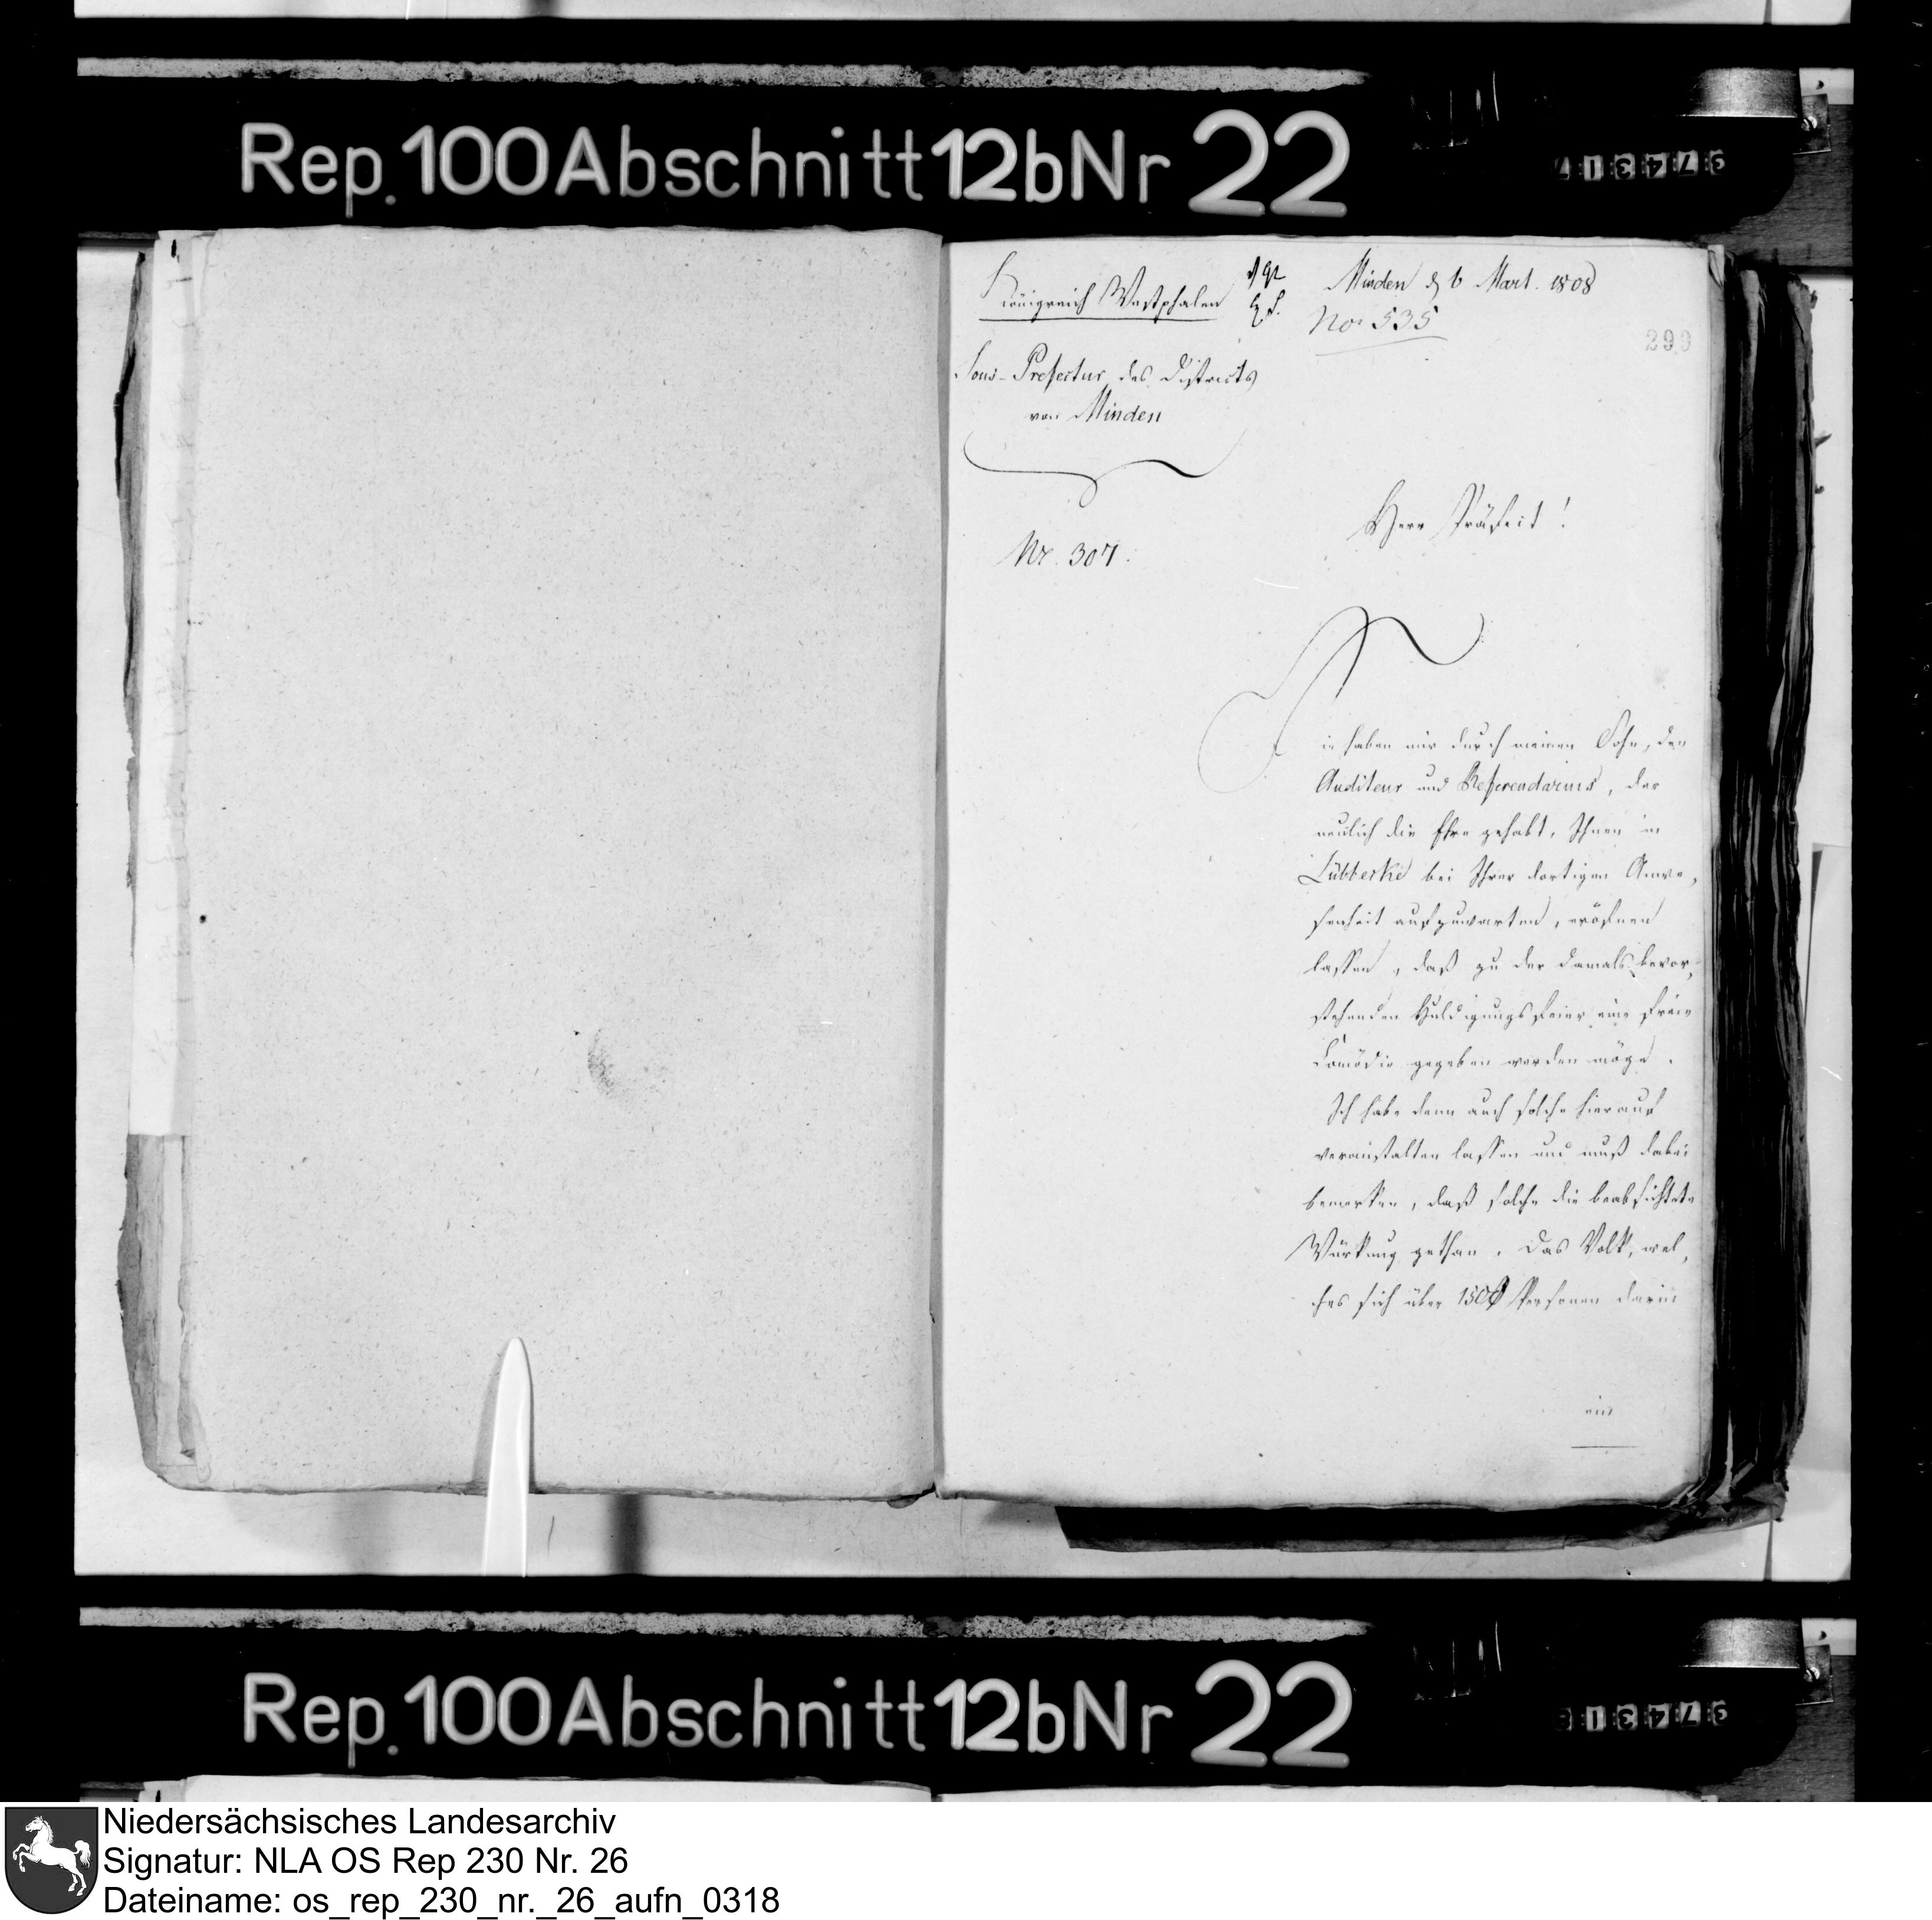 Rep. 100 Abschnitt 12b Nr 22
Königreich Westphalen
Sous-Prefectur des Districts
von Minden
Nr. 307.
Minden d 6 Mart. 1808
No. 535
299
Herr Präfect!
Sie haben mir durch meinen Sohn, den
Auditeur und Referendarius, der
neulich die Ehre gehabt, Ihnen in
Lübbecke bei Ihrer dortigen Anwe,
senheit aufzuwarten, eröfnen
lassen, daß zu der damals bevor,
stehenden Huldigungsfeier eine freie
Comödie gegeben werden möge.
Ich habe denn auch solche hierauf
veranstalten lassen und muß dabei
bemerken, daß solche die beabsichtete
Würkung gethan. Das Volk, wel,
ches sich über 1500 Personen darin
ein
Rep. 100 Abschnitt 12b Nr 22
Niedersächsisches Landesarchiv
Signatur: NLA OS Rep 230 Nr. 26
Dateiname: os_rep_230_nr._26_aufn_0318